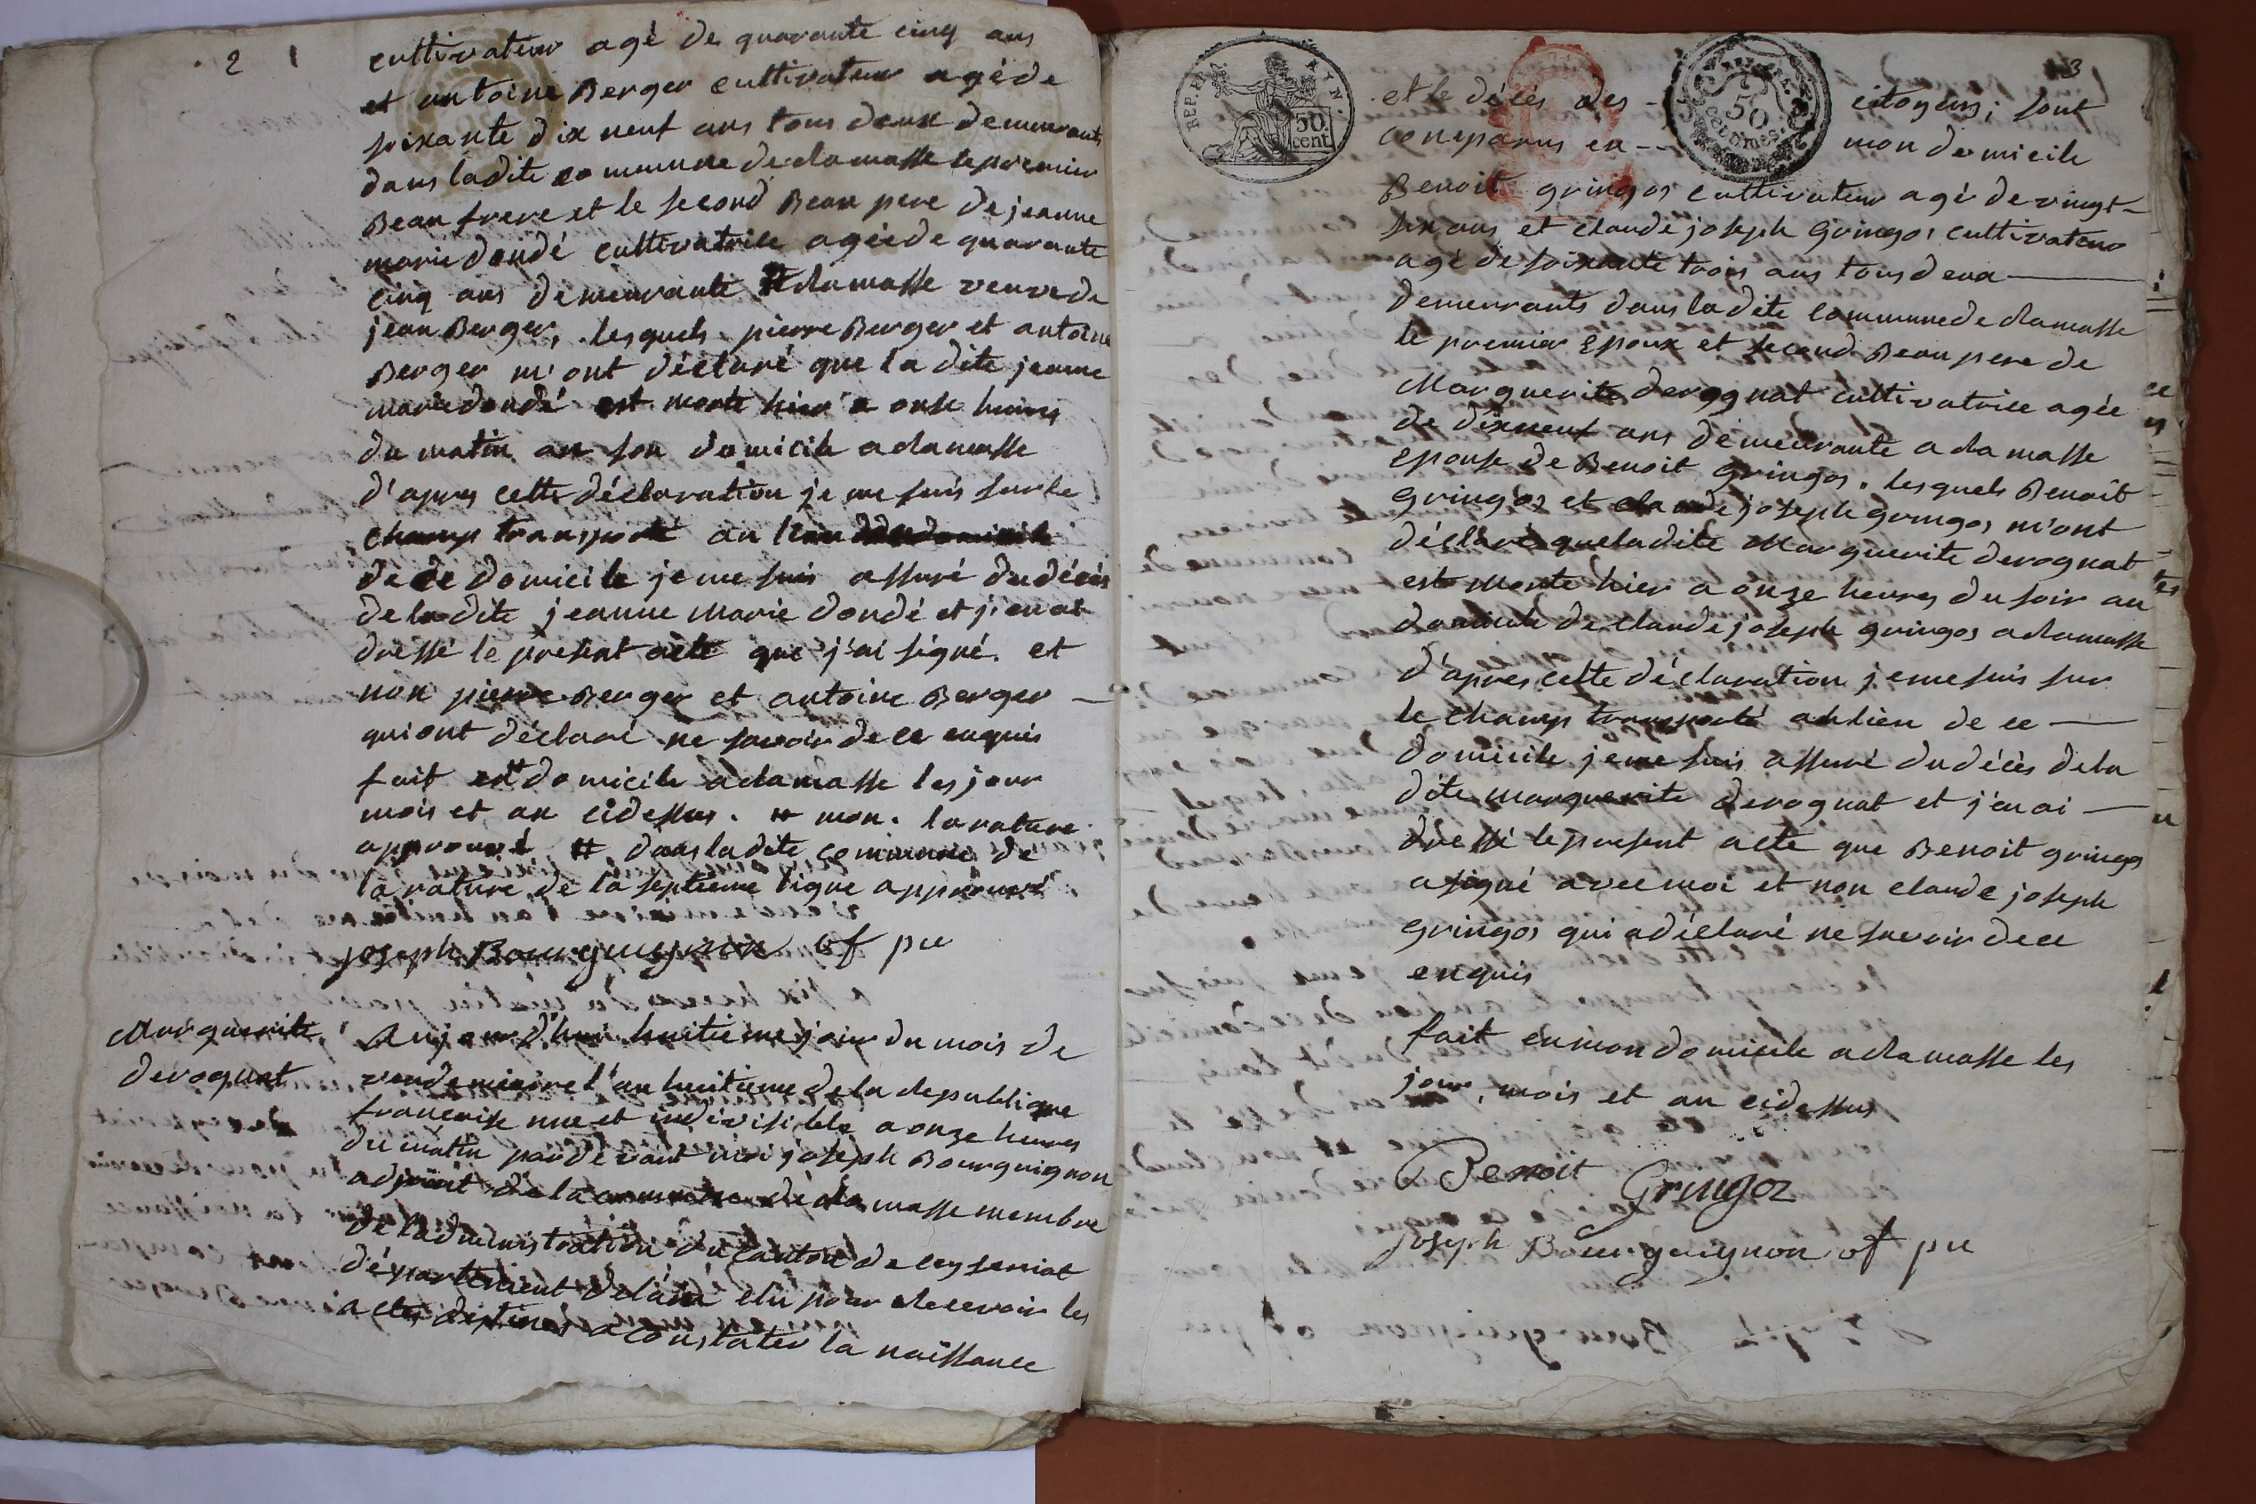 2
cultivateur agé de quarante cinq ans
et antoine Berger cultivateur agé de
soixante dix neuf ans tous deux demeurants
dans ladite commune de dlamasse le premier
Beau frere et le second Beau pere de jeanne
marie dondé cultivatrice agéede quarante
cinq ans demeurante # dlamasse veuve de
jean Berger, lesquels pierre Berger et antoine
Berger m'ont déclaré que la dite jeanne
marie dondé est morte hier a onse heures
du matin au son domicile adlamasse
d'apres cette déclaration je me suis sur le
champ transporté au lieu
de ce domicile je me suis assuré du décès
de la dite jeanne marie dondé et j'en ai
dressé le present acte que j'ai signé. et
non pierre Berger et antoine Berger
qui ont déclaré ne savoir de ce enquis
fait en # domicile adlamasse les jour
mois et an cidessus. # mon. la rature
approuvé # dans ladite commune de
la rature de la septieme ligne approuvé
joseph Bourguignon of pu
Marguerite
derognat
Aujourd'hui huitieme jour du mois de
vendemiaire l'an huitieme de la Republique
francaise une et indivisible a onze heures
du matin pardevant moi joseph Bourguignon
adjoint de la commune de dlamasse membre
de l'administration du canton de ceyseriat
département de l'ain elu pour Recevoir les
actes destinés a constater la naissance
3
REP. FRA
50
cent
50
CENTIMES
et le décès des citoyens; sont
comparus en mon domicile
Benoit gringos cultivateur agé de vingt
six ans et claude joseph Gringos cultivateur
agé de soixante trois ans tous deux
demeurants dans ladite commune de dlamasse
le premier Epoux et second Beau pere de
Marguerite derognat cultivatrice agée
de dixneuf ans demeurante a dlamasse
Epouse de Benoit gringos. lesquels Benoit
Gringos et claude joseph gringos m'ont
déclaré que ladite Marguerite derognat
est morte hier a onze heures du soir au
domicile de claude joseph gringos adlamasse
d'apres cette déclaration je me suis sur
le champ transporté au lieu de ce
domicile je me suis assuré du décès de la
dite marguerite derognat et j'en ai
dressé le present acte que Benoit gringos
a signé avec moi et non claude joseph
Gringos qui a déclaré ne savoir de ce
enquis
fait en mon domicile adlamasse les
jour, mois et an cidessus
Benoit Gringoz
joseph Bourguignon of pu